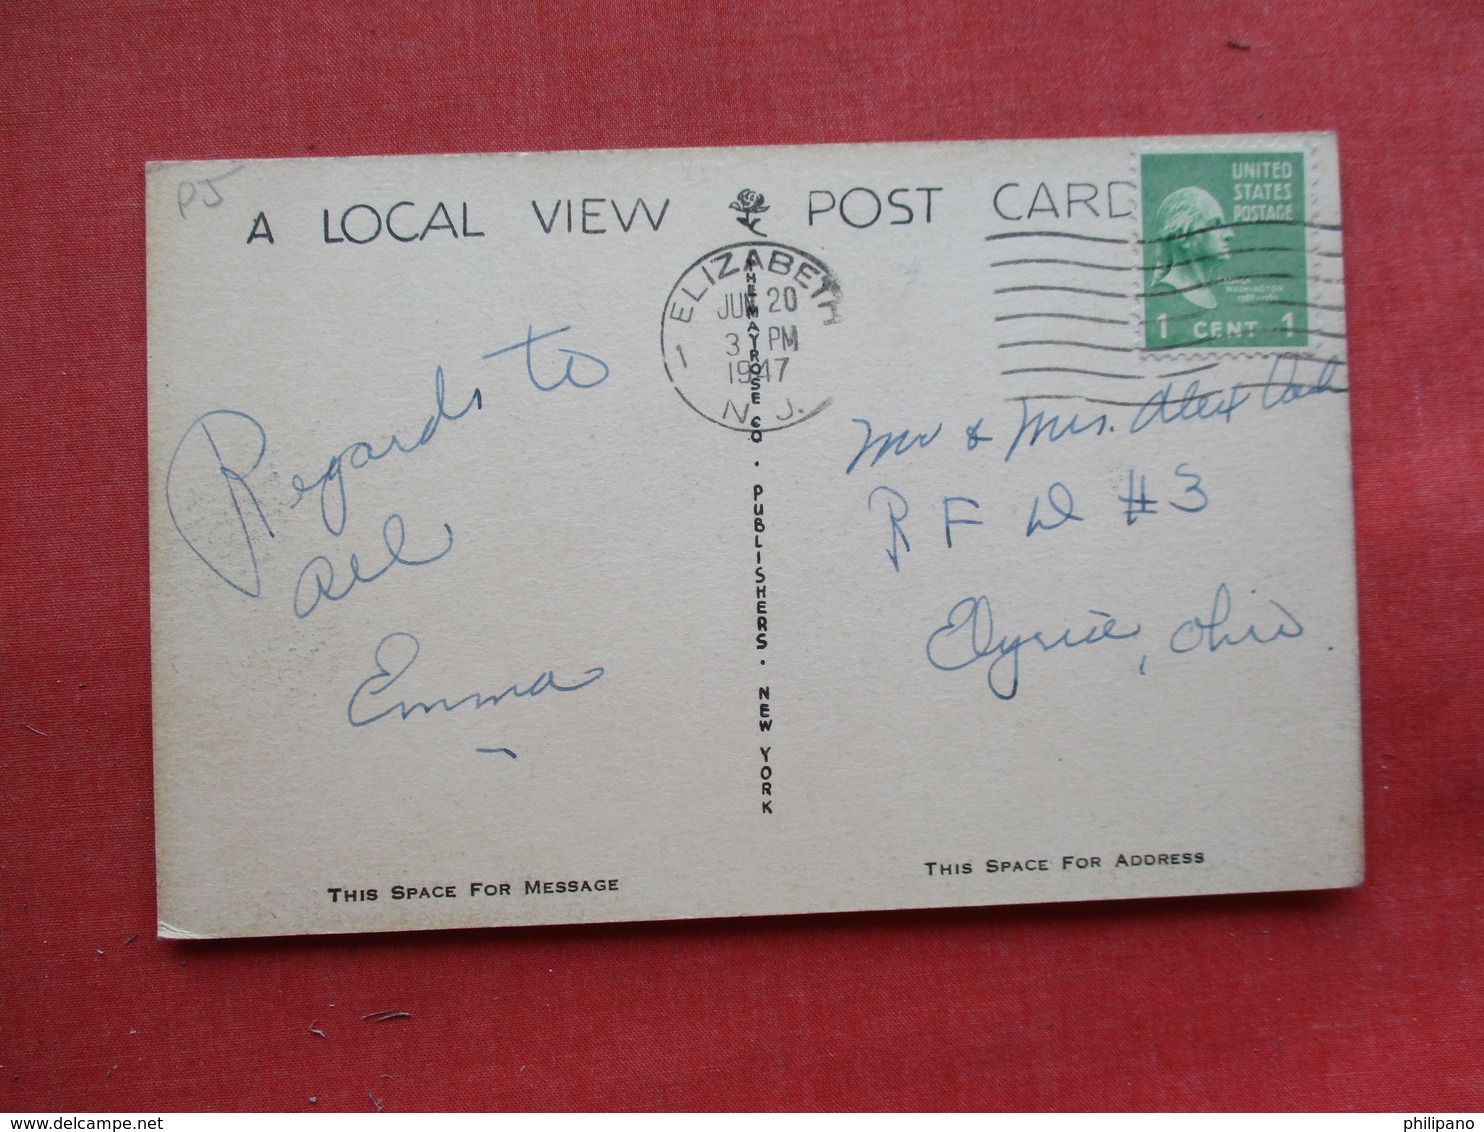 PJ
A LOCAL VIEW POST CARD
UNITED
STATES
POSTAGE
GEORGE
WASHINGTON
1 CENT 1
ELIZABETH
JUN 20
3 PM
1947
N. J.
THE MAYROSE CO. PUBLISHERS. NEW YORK
Regards to
all
Emma
Mr & Mrs. Alex
R F D #3
Elyria, Ohio
THIS SPACE FOR MESSAGE
THIS SPACE FOR ADDRESS
philipano